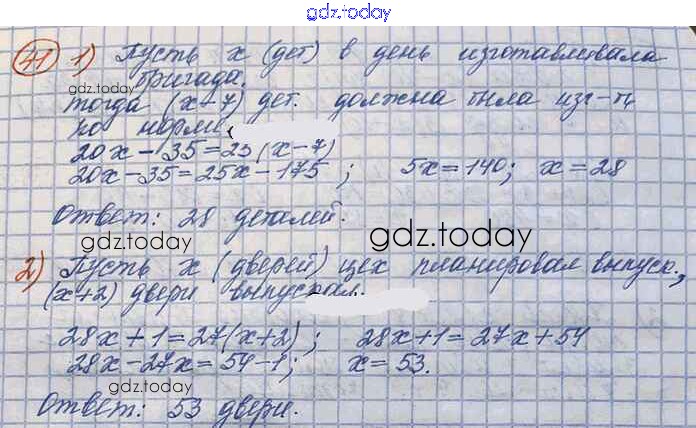 gdz.today
41 1) Пусть x (дет) в день изготавливала
бригада.
gdz.today
тогда (x-7) дет. должна была изг-ть
по норме,
20x - 35 = 25(x-7)
20x - 35 = 25x - 175 ; 5x = 140; x = 28
Ответ: 28 деталей.
gdz.today
gdz.today
2) Пусть x (дверей) цех планировал выпуск.,
(x+2) двери выпускал.
28x + 1 = 27(x+2) ; 28x+1 = 27x + 54
28x - 27x = 54 - 1; x = 53.
gdz.today
Ответ: 53 двери.